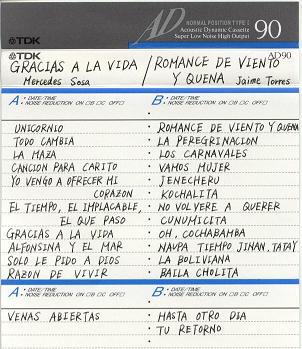 AD NORMAL POSITION TYPE I 90
Acoustic Dynamic Cassette
TDK Super Low Noise High Output
TDK AD90
GRACIAS A LA VIDA / ROMANCE DE VIENTO
Mercedes Sosa Y QUENA Jaime Torres
A • DATE/TIME B • DATE/TIME
• NOISE REDUCTION ON □B □C OFF□ • NOISE REDUCTION ON □B □C OFF□
UNICORNIO • ROMANCE DE VIENTO Y QUENA
TODO CAMBIA • LA PEREGRINACION
LA MAZA • LOS CARNAVALES
CANCION PARA CARITO • VAMOS MUJER
YO VENGO A OFRECER MI • JENECHERU
CORAZON • KOCHALITA
EL TIEMPO, EL IMPLACABLE, • NO VOLVERE A QUERER
EL QUE PASO • CUNUMICITA
GRACIAS A LA VIDA • OH, COCHABAMBA
ALFONSINA Y EL MAR • NAUPA TIEMPO JINAN, TATAY
SOLO LE PIDO A DIOS • LA BOLIVIANA
RAZON DE VIVIR • BAILA CHOLITA
A • DATE/TIME B • DATE/TIME
• NOISE REDUCTION ON □B □C OFF□ • NOISE REDUCTION ON □B □C OFF□
VENAS ABIERTAS • HASTA OTRO DIA
• TU RETORNO